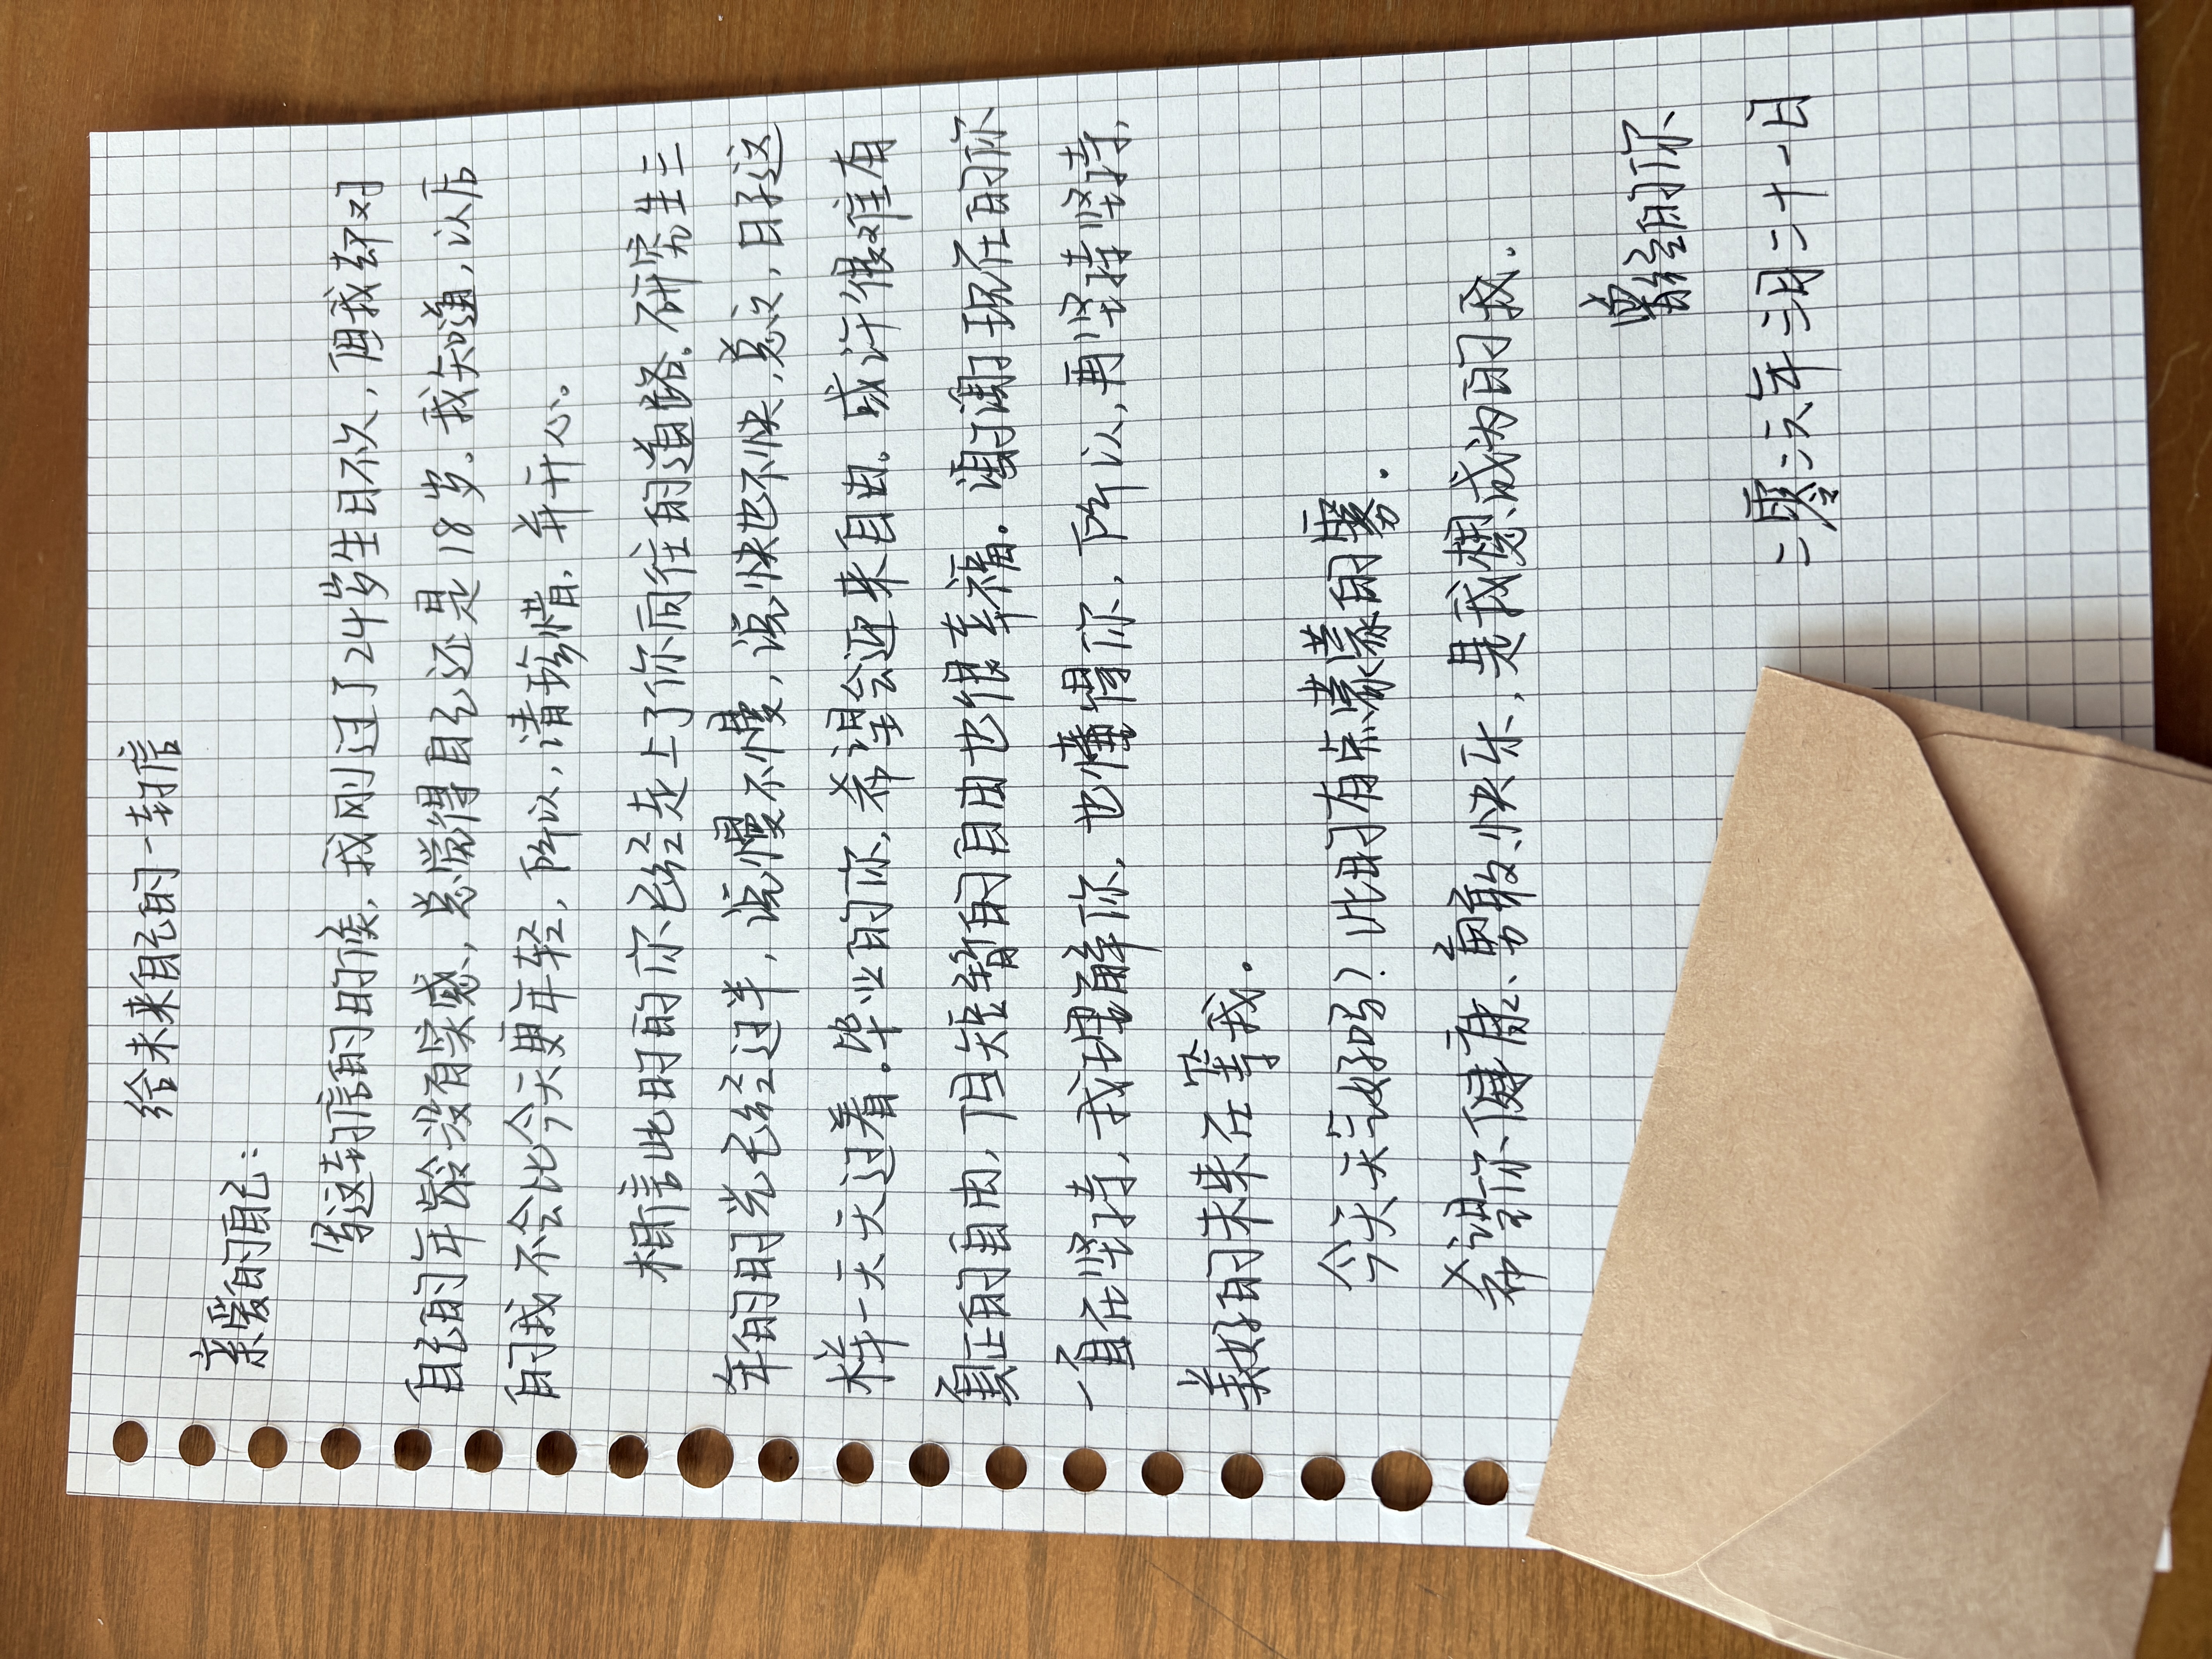 给未来自己的一封信
亲爱的自己:
写这封信的时候,我刚过了24岁生日不久,但我却对
自己的年龄没有实感,总觉得自己还是18岁。我知道,以后
的我不会比今天更年轻,所以,请珍惜,并开心。
相信此时的你已经走上了你向往的道路。研究生三
年的时光已经过半,说慢不慢,说快也不快,总之,日子这
样一天天过着。毕业的你,希望会迎来自由。或许很难有
真正的自由,但短暂的自由也很幸福。谢谢现在的你
一直在坚持,我理解你,也懂得你,所以,再坚持坚持,
美好的未来在等我。
今天天气好吗?此时有点蒙蒙的雾。
希望你健康、勇敢、快乐,是我想成为的我。
曾经的你
二零二六年三月二十一日